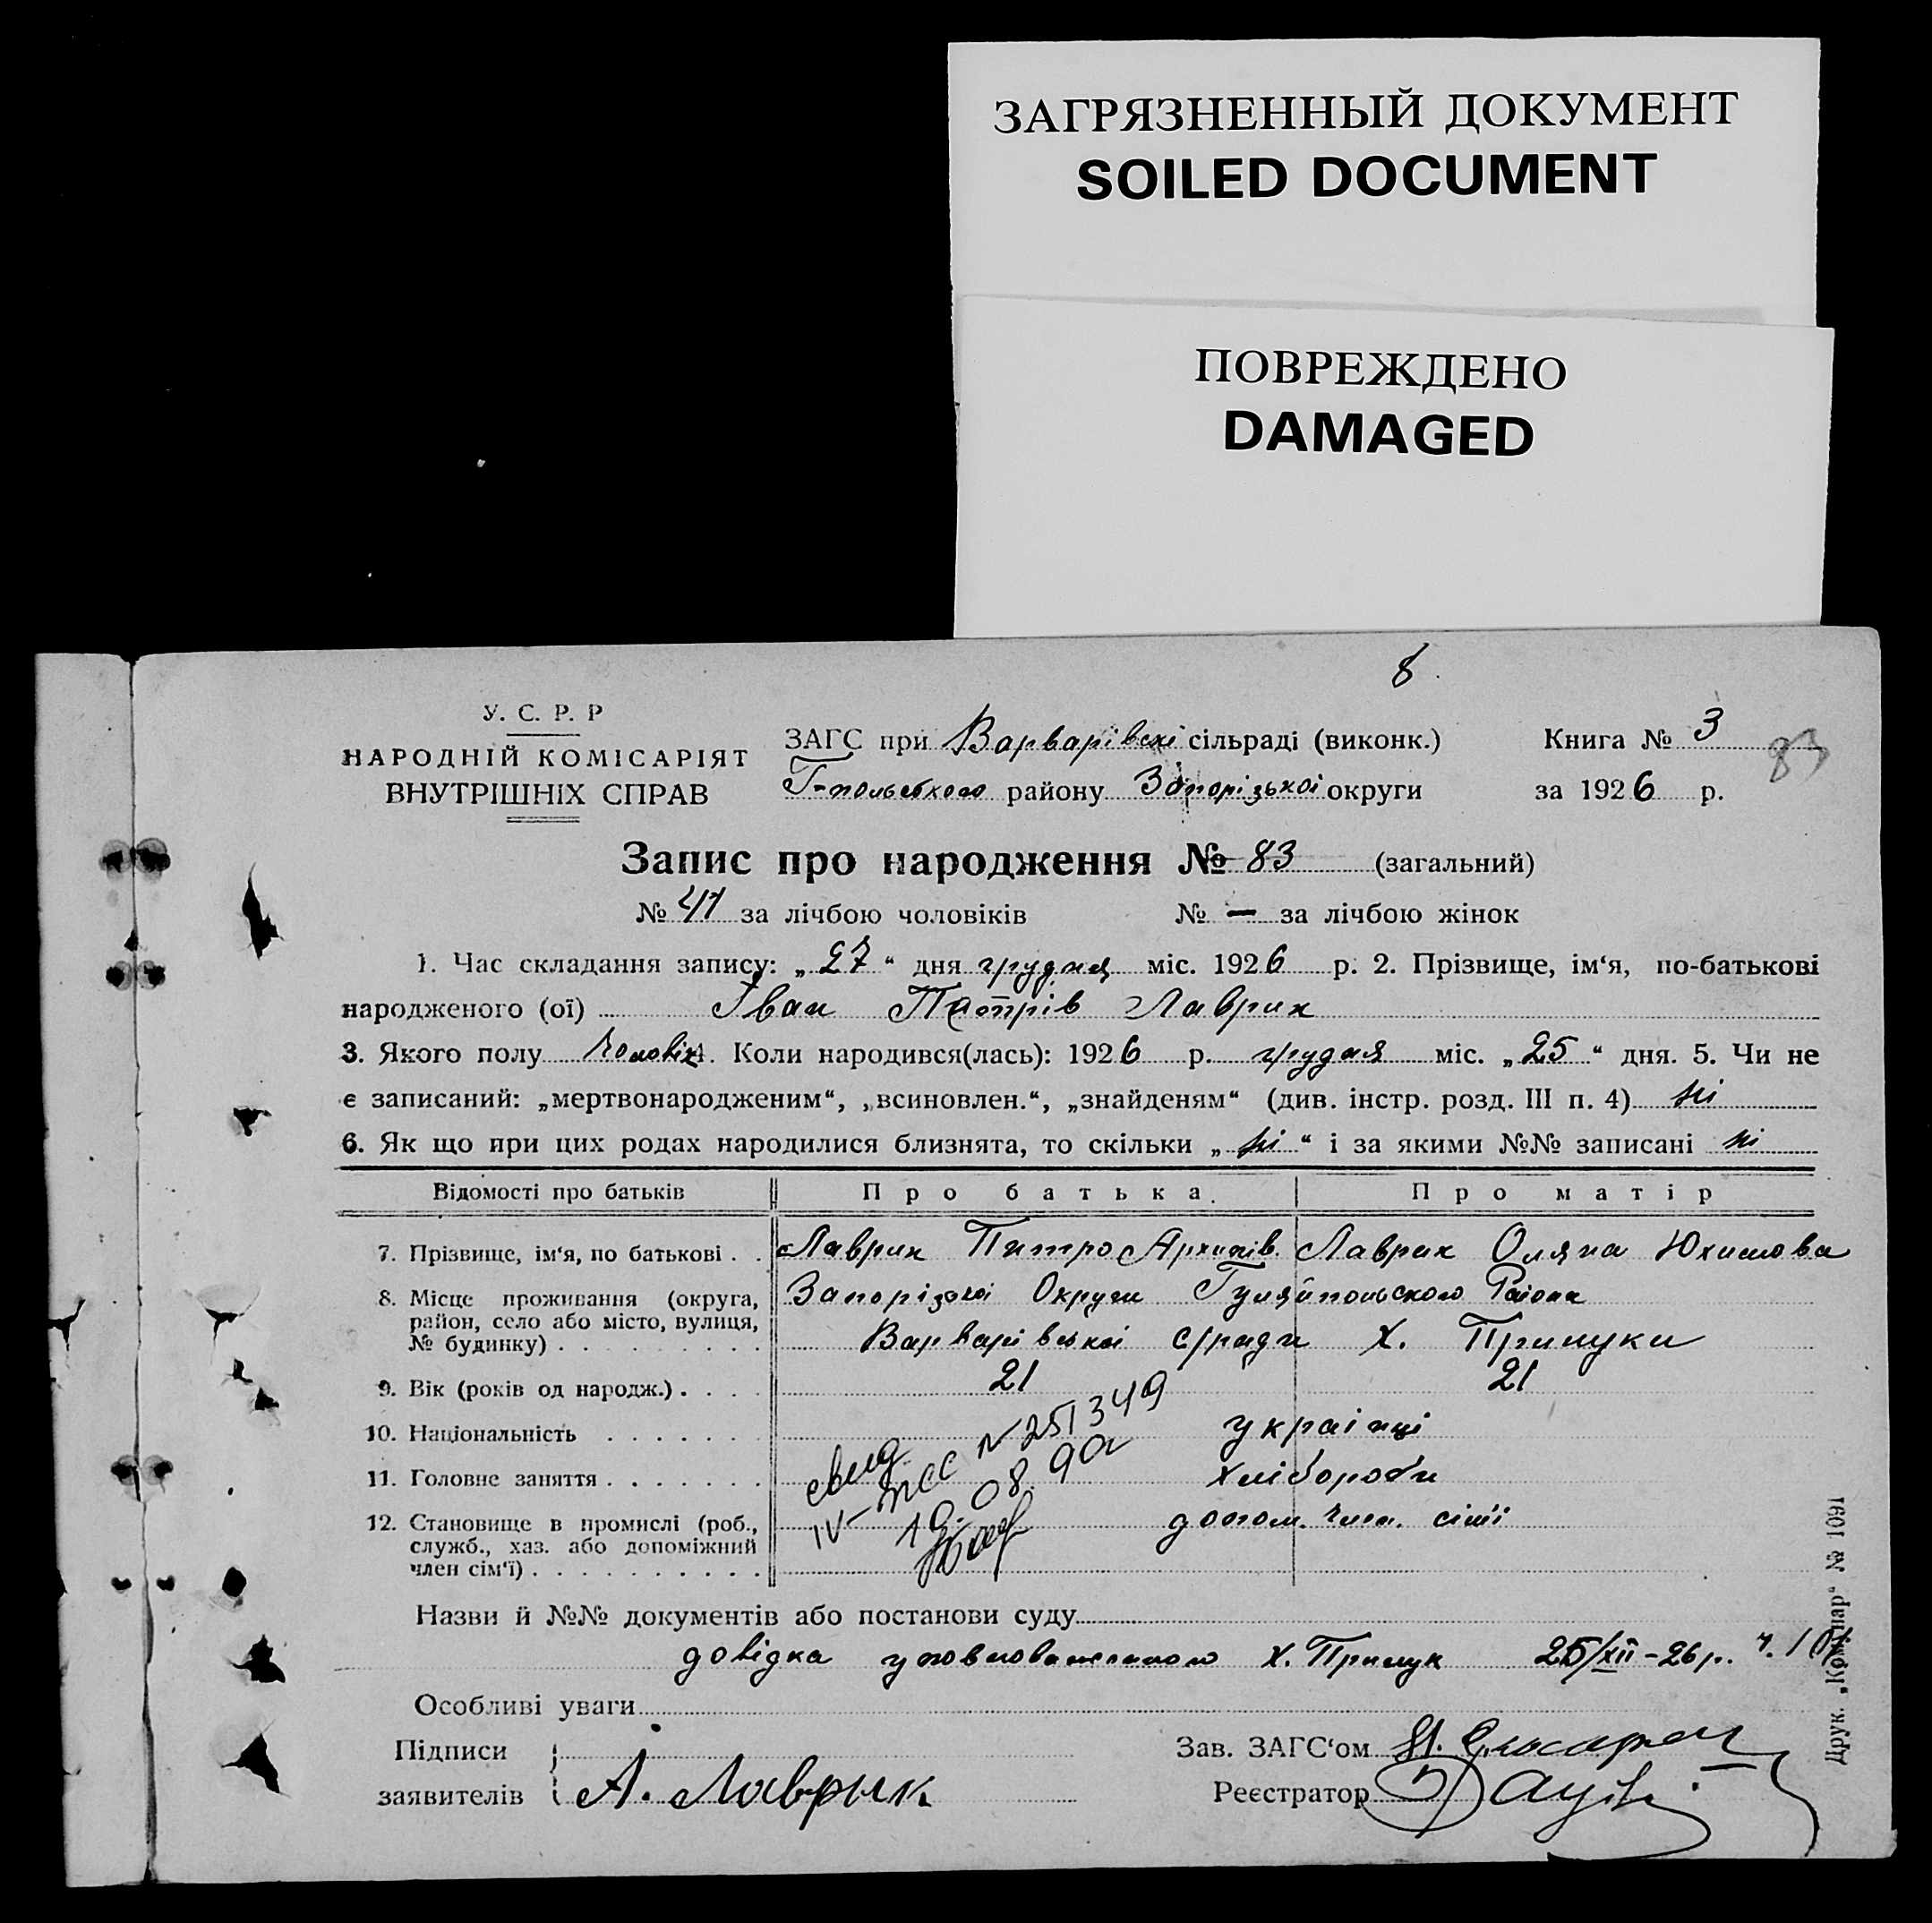 ЗАГРЯЗНЕННЫЙ ДОКУМЕНТ
SOILED DOCUMENT
ПОВРЕЖДЕНО
DAMAGED
8.
У. С. Р. Р
НАРОДНІЙ КОМІСАРІЯТ
ВНУТРІШНІХ СПРАВ
ЗАГС при Варварівскі сільраді (виконк.)
Г-польського району Запорізької округи
Книга № 3
за 1926 р.
83
Запис про народження № 83 (загальний)
№ 41 за лічбою чоловіків № — за лічбою жінок
1. Час складання запису: „27“ дня грудня міс. 1926 р. 2. Прізвище, ім‘я, по-батькові
народженого (ої) Іван Петрів Лаврик
3. Якого полу Чоловік 4. Коли народився(лась): 1926 р. грудня міс. „25“ дня. 5. Чи не
є записаний: „мертвонародженим“, „всиновлен.“, „знайденям“ (див. інстр. розд. III п. 4) ні
6. Як що при цих родах народилися близнята, то скільки „ні“ і за якими №№ записані ні
Відомості про батьків Про батька. Про матір
7. Прізвище, ім‘я, по батькові . . Лаврик Питро Архипів. Лаврик Оляна Юхимова
8. Місце проживання (округа, район, село або місто, вулиця, № будинку) . Запорізької Округи Гуляйпольского Района
Варварівської с/ради х. Прилуки
9. Вік (років од народж.) . 21 21
10. Національність українці
11. Головне заняття хлібороби
12. Становище в промислі (роб., служб., хаз. або допоміжний член сім‘ї) . допом. член. сімї
свид.
IV-ЖС N 251349
10.08.90г
Назви й №№ документів або постанови суду
довідка уповноваженого х. Прилук 25/XII-26 р. ч. 101
Особливі уваги
Підписи
заявителів А. Лаврик
Зав. ЗАГС‘ом
Реєстратор
Друк. „Комунар“ № 1091